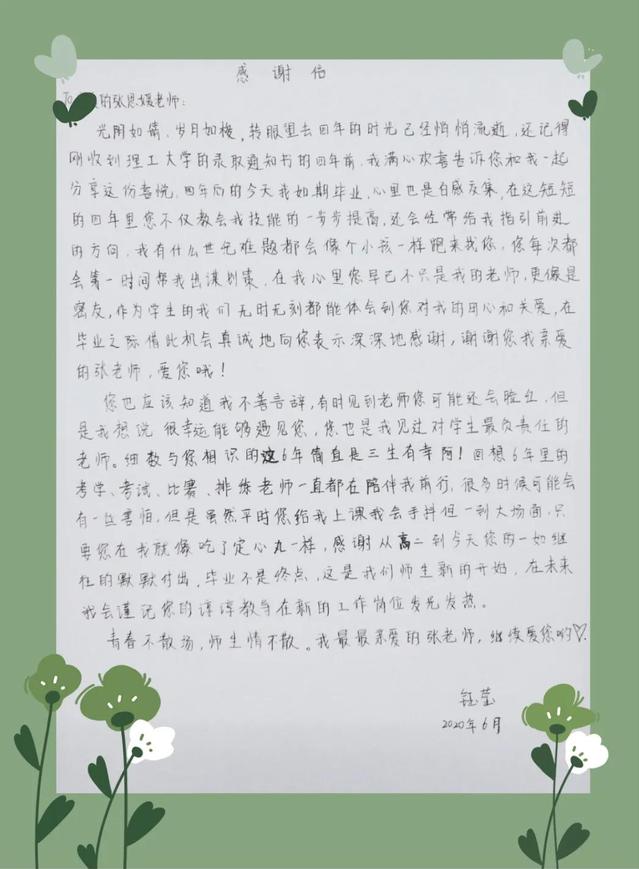 感谢信
的张思媛老师：
光阴如箭、岁月如梭，转眼里去四年的时光已经悄悄流逝，还记得
刚收到理工大学的录取通知书的四年前，我满心欢喜告诉您和我一起
分享这份喜悦，四年后的今天我如期毕业，心里也是百感交集，在这短短
的四年里您不仅教会我技能的一步步提高，还会经常给我指引前进
的方向，我有什么世纪难题都会像个小孩一样跑来找您，您每次都
会第一时间帮我出谋划策，在我心里您早已不只是我的老师，更像是
密友，作为学生的我们无时无刻都能体会到您对我的用心和关爱，在
毕业之际借此机会真诚地向您表示深深地感谢，谢谢您我亲爱
的张老师，爱您哦！
您也应该知道我不善言辞，有时见到老师您可能还会脸红，但
是我想说很幸运能够遇见您，您也是我见过对学生最负责任的
老师。细数与您相识的这6年简直是三生有幸阿！回想6年里的
考学、考试、比赛、排练老师一直都在陪伴我前行，很多时候可能会
有一丝害怕，但是虽然平时您给我上课我会手抖但一到大场面，只
要您在我就像吃了定心丸一样，感谢从高二到今天您的一如继
往的默默付出，毕业不是终点，这是我们师生新的开始，在未来
我会谨记您的谆谆教导在新的工作岗位发光发热。
青春不散场，师生情不散。我最最亲爱的张老师，继续爱您哟♡
钰莹
2020年6月